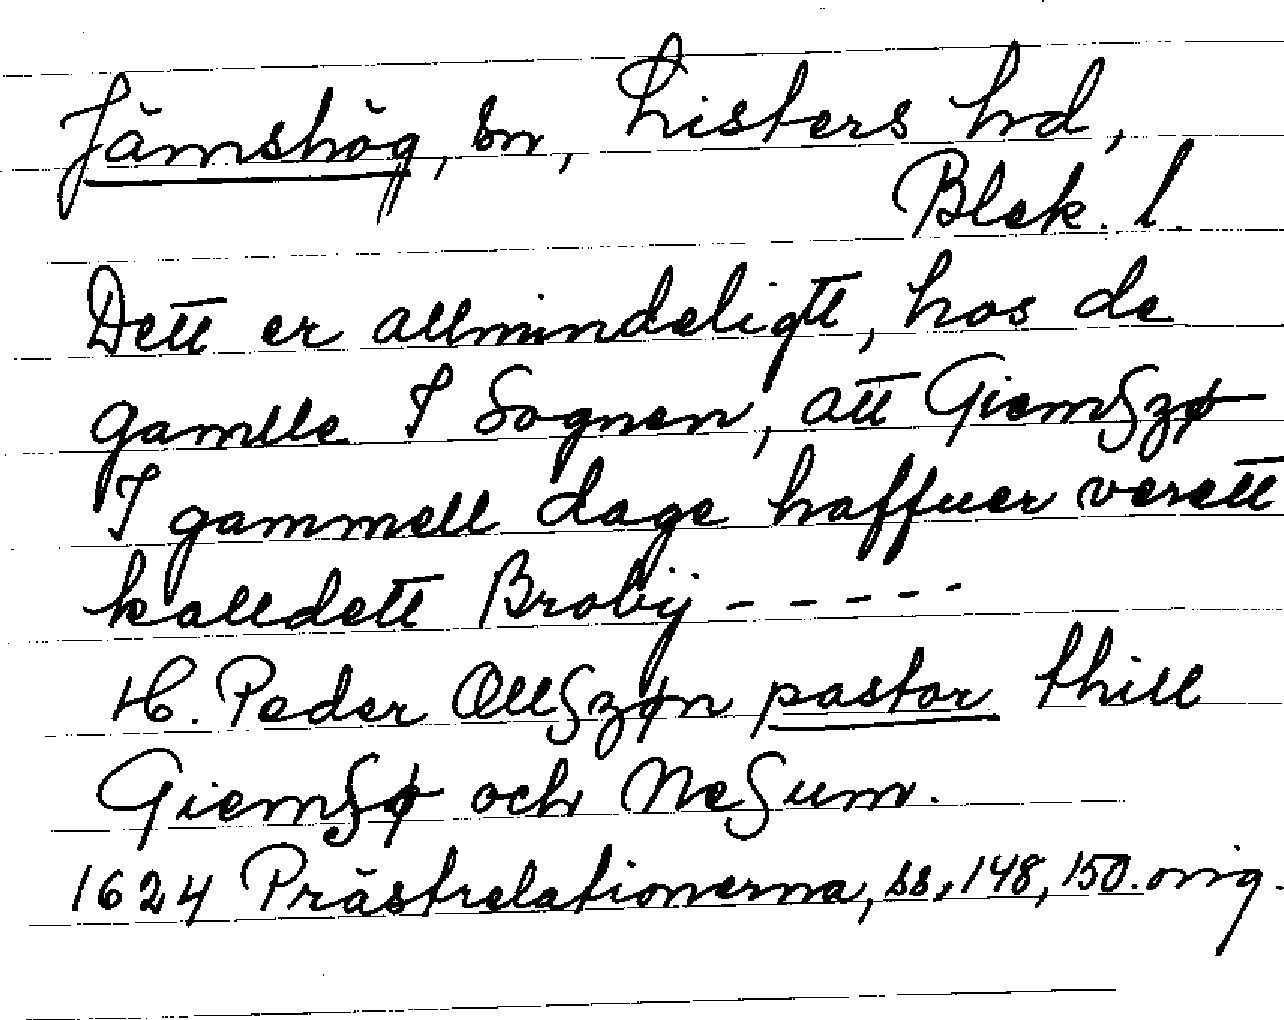 Jämshög, sn, Listers hd,
Blek. l.
Dett er allmindeligtt, hos de
gamlle I Sognen, att Giemβzø
I gammell dage haffuer verett
kalldett Brobÿ - - - - -
H. Peder Ollβzøn pastor thill
Giemβø och Neβum.
1624 Prästrelationerna, ss, 148, 150. orig.